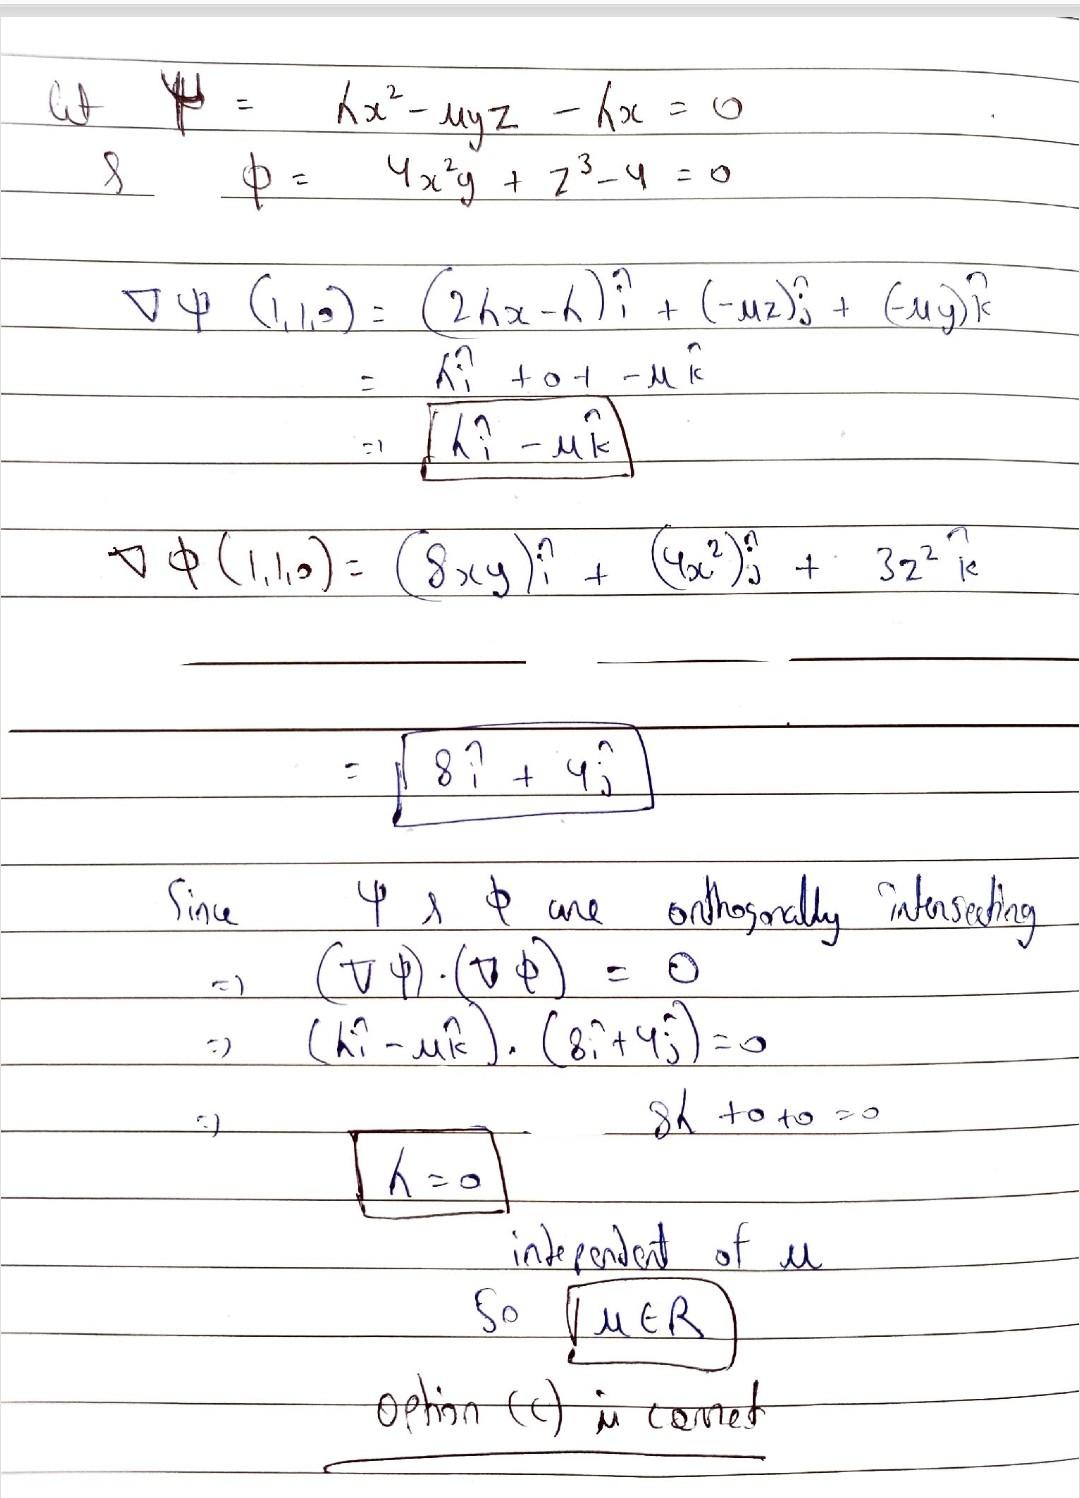 let ψ = λx² - μyz - λx = 0
& ϕ = 4x²y + z³ - 4 = 0
∇ψ (1,1,0) = (2λx - λ)î + (-μz)ĵ + (-μy)k̂
= λî + 0 + -μk̂
⇒ λî - μk̂
∇ϕ (1,1,0) = (8xy)î + (4x²)ĵ + 3z² k̂
= 8î + 4ĵ
Since ψ & ϕ are orthogonally intersecting
⇒ (∇ψ)·(∇ϕ) = 0
⇒ (λî - μk̂)·(8î + 4ĵ) = 0
⇒ 8λ + 0 + 0 = 0
λ = 0
independent of μ
So μ ∈ R
option (c) is correct